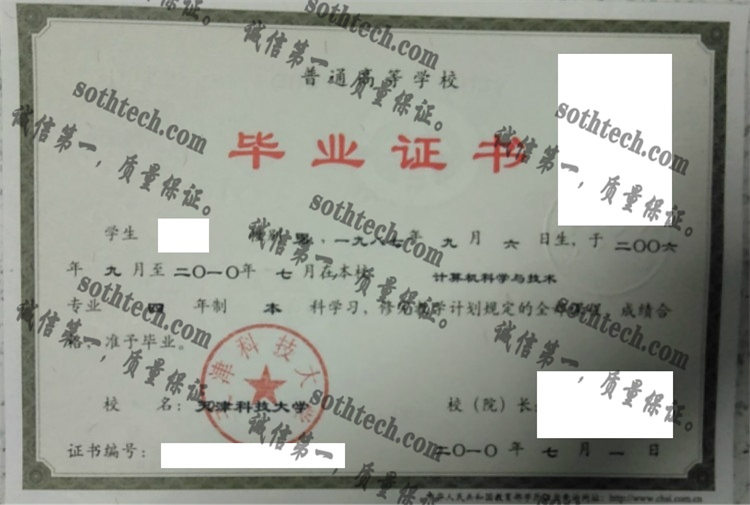 普通高等学校
毕业证书
学生 性别 男，一九八七年 九 月 六 日生，于 二〇〇六
年 九 月至 二〇一〇年 七 月在本校 计算机科学与技术
专业 四 年制 本 科学习，修完教学计划规定的全部课程 成绩合
格，准予毕业。
校 名：天津科技大学
校（院）长：
证书编号：
二〇一〇 年 七 月 一 日
中华人民共和国教育部学历证书查询网址：http://www.chsi.com.cn
天津科技大学
sothtech.com
诚信第一，质量保证。
sothtech.com
诚信第一，质量保证。
sothtech.com
诚信第一，质量保证。
sothtech.com
诚信第一，质量保证。
sothtech.com
诚信第一，质量保证。
sothtech.com
诚信第一，质量保证。
sothtech.com
诚信第一，质量保证。